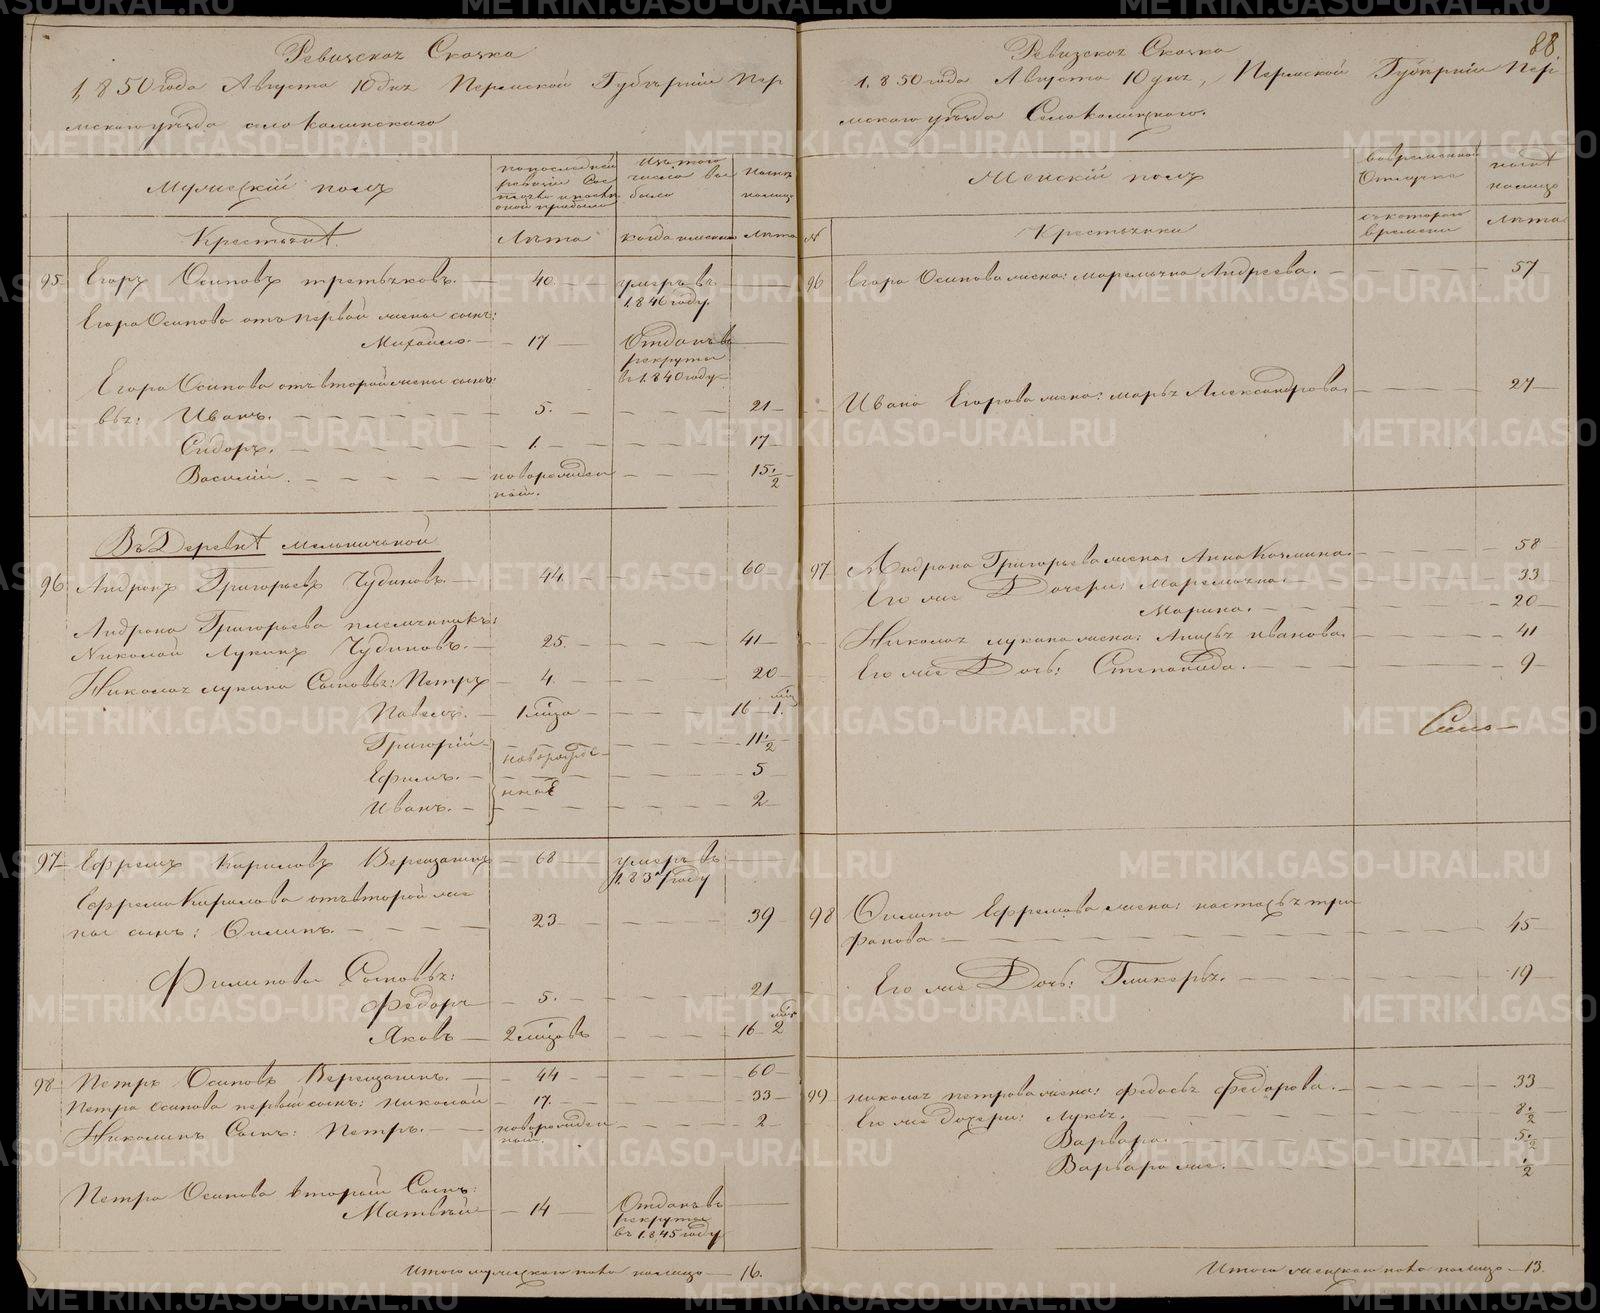 Ревизская Сказка
1,850 года Августа 10 дня Пермской Губерніи Пер
мского уѣзда села Калинскаго
Мужескій полъ
по последней ревизіи Сос
Изъ того числа вы было
Нынѣ на лицо
Крестьянѣ
Лѣта
когда именно
Лѣта
95 Егоръ Осиповъ третьяковъ. 40. умеръ въ 1.846 году.
Егора Осипова отъ первой жены сынъ:
Михайло. 17 Отданъ въ рекруты в 1.840 году
Егора Осипова отъ второй жены сыно
вья: Иванъ. 5. 21
Сидоръ. 1. 17
Василій. новорожден ный. 15 1/2
Въ Деревнѣ мельничной
96 Андронъ Григорьевъ Чудиновъ. 44 60
Андрона Григорьева племянникъ:
Николай Лукинъ Чудиновъ. 25. 41
Николая лукина Сыновья: Петръ 4 20
Павелъ. 1 мца 16 1 мц
Григорій новорожде 11 1/2
Ефимъ. нные 5
Иванъ. 2
97 Ефремъ Кириловъ Верещагинъ 68 умеръ въ году
Ефрема Кирилова отъ второй же
ны сынъ: Филипъ. 23 39
Филипова Сыновья: 21
Федоръ 5.
Яковъ 2 мцовъ 16 2 мц
98 Петръ Осиповъ Верещагинъ. 44 60
Петра осипова первый сынъ: николай 17. 33
Николаинъ Сынъ: Петръ. новорожден ный. 2
Петра Осипова второй Сынъ:
Матвѣй 14 Отданъ въ рекруты въ 1845 году
Итого мужескаго пола на лицо 16.
88
Ревизская Сказка
1.850 года Августа 10 дня, Пермской Губерніи Пер
мскаго уѣзда Села калинскаго.
Женскій полъ
Во временной Отлучкѣ
нынѣ на лицо
№
Крестьянки
съ котораго времени
Лѣта
96 Егора Осипова жена: маремьяна Андреева. 57
Ивана Егорова жена: марья Александрова 27
97 Андрона Григорьева жена Анна Козмина 58
Его же Дочери: Маремьяна 33
Марина. 20
Николая лукина жена: иванова. 41
Его же Дочь: Степанида. 9
Село
98 Филипа Ефремова жена: настасья три
фанова 45
Его же Дочь: Гликерья. 19
99 николая петрова жена: федосья федорова. 33
Его же дочери: Лукія. 8 1/2
Варвара 5 1/2
Варвара же. 1/2
Итого женскаго пола на лицо 13.
METRIKI.GASO-URAL.RU